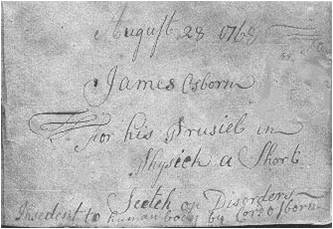 August 28 1768
James Osborn
For his Trusiel in
Physick a Short
Scetch on Disorders
Insedent to human body by Cor: Osborn